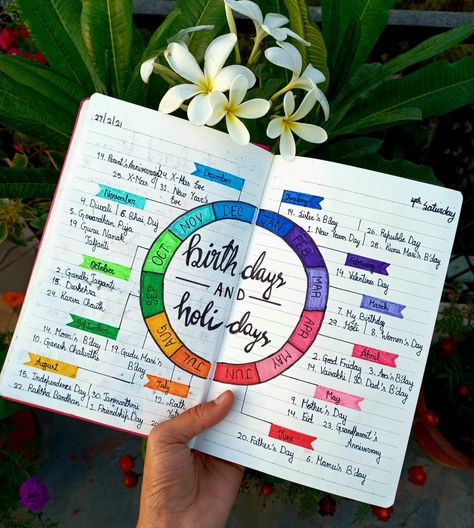 27/2/21
4th Saturday
birthdays
AND
holidays
JAN
FEB
MAR
APR
MAY
JUN
JUL
AUG
SEP
OCT
NOV
DEC
January
19. Sister's B'day
26. Republic Day
1. New Year Day
28. Kunu Mars's B'day
February
14. Valentine's Day
March
7. My Birthday
29. Holi
8. Women's Day
April
2. Good Friday
3. Ava's B'day
14. Vaisakhi
30. Dad's B'day
May
9. Mother's Day
14. Eid
23. Grandparent's
Anniversary
June
20. Father's Day
Mamu's B'day
July
12.
B'day
August
15. Independence Day
30. Janmashtmi
22. Raksha Bandhan
2. Friendship Day
September
14. Mom's B'day
19. Gudu Mars's
B'day
10. Ganesh Chaturthi
October
2. Gandhi Jayanti
15. Dushehra
24. Karva Chauth
November
4. Diwali
6. Bhai Duj
5. Govardhan Puja
19. Guru Nanak
Jayanti
December
14. Parent's Anniversary
24. X-Mas Eve
25. X-Mas
31. New Year's
Eve